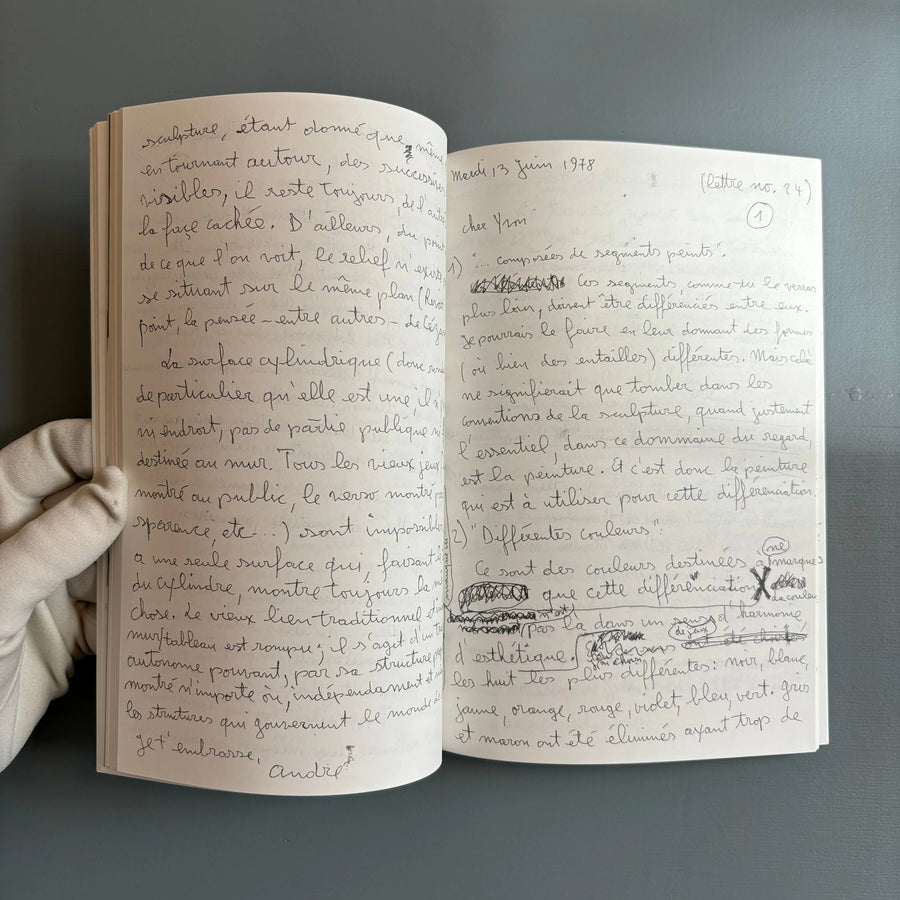 sculpture, étant donné que, même
en tournant autour, des successives
visibles, il reste toujours, de l'autre
la façe cachée. D'ailleurs, du point
de ce que l'on voit, le relief n'existe
se situant sur le même plan (
point, la pensée – entre autres – de Cézan
La surface cylindrique (donc
de particulier qu'elle est une, il n'y
ni endroit, pas de partie publique ni
destinée au mur. Tous les vieux jeux
montré au public, le verso montré
sparence, etc...) sont impossibles
a une seule surface qui, faisant
du cylindre, montre toujours la
chose. Le vieux lien traditionnel
mur/tableau est rompu; il s'agit d'un
autonome pouvant, par sa structure
montré n'importe où, indépendament
les structures qui gouvernent le monde de
Je t'embrasse,
André
mardi 13 Juin 1978
(lettre no. 24)
1
cher Yvon
1) "... composées de segments peints".
Ces segments, comme tu le verras
plus loin, doivent être différenciés entre eux.
Je pourrais le faire en leur donnant des formes
(où bien des entailles) différentes. Mais celà
ne signifierait que tomber dans les
conventions de la sculpture, quand justement
l'essentiel, dans ce dommaine du regard,
est la peinture. Et c'est donc la peinture
qui est à utiliser pour cette différenciation.
2) "Différentes couleurs":
Ce sont des couleurs destinées a (ne) marquer
que cette différenciation
la couleur
n'est pas là dans un sens d'harmonie,
d'esthétique. J'ai choisi
les huit les plus différentes: noir, blanc,
jaune, orange, rouge, violet, bleu, vert. gris
et maron ont été éliminés ayant trop de